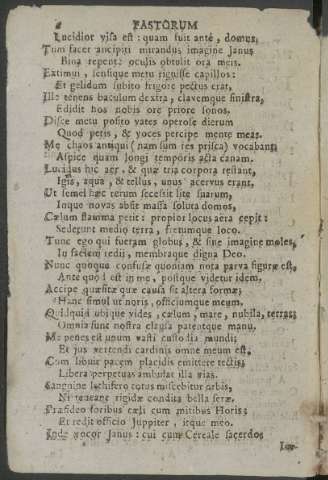 FASTORUM
Lucidior visa est : quam fuit ante, domus,
Tum sacer ancipiti mirandus imagine Janus
Bina repente oculis obtulit ora meis.
Extimui, sensique metu riguisse capillos :
Et gelidum subito frigore pectus erat,
Ille tenens baculum dextra, clavemque sinistra,
Edidit hos nobis ore priore sonos.
Disce metu posito vates operose dierum
Quod petis, & voces percipe mente meas.
Me chaos antiqui (nam sum res prisca) vocabant
Aspice quam longi temporis acta canam.
Lucidus hic aer, & quæ tria corpora restant,
Ignis, aqua, & tellus, unus acervus erant,
Ut semel hæc rerum secessit lite suarum,
Inque novas abiit massa soluta domos,
Cælum flamma petit : propior locus aëra cepit :
Sederunt medio terra, fretumque loco.
Tunc ego qui fueram globus, & sine imagine moles,
In faciem redii, membraque digna Deo.
Nunc quoque confusæ quondam nota parva figuræ est,
Ante quod est in me, postque videtur idem.
Accipe quæsitæ quæ causa sit altera formæ;
Hanc simul ut noris, officiumque meum.
Quidquid ubique vides, cælum, mare, nubila, terras;
Omnia sunt nostra clausa patentque manu.
Me penes est unum vasti custodia mundi;
Et jus vertendi cardinis omne meum est.
Cum libuit pacem placidis emittere tectis;
Libera perpetuas ambulat illa vias.
Sanguine lethifero totus miscebitur orbis,
Ni teneant rigidæ condita bella seræ.
Præsideo foribus cæli cum mitibus Horis;
Et redit officio Juppiter, itque meo.
Inde vocor Janus : cui cum Cereale sacerdos